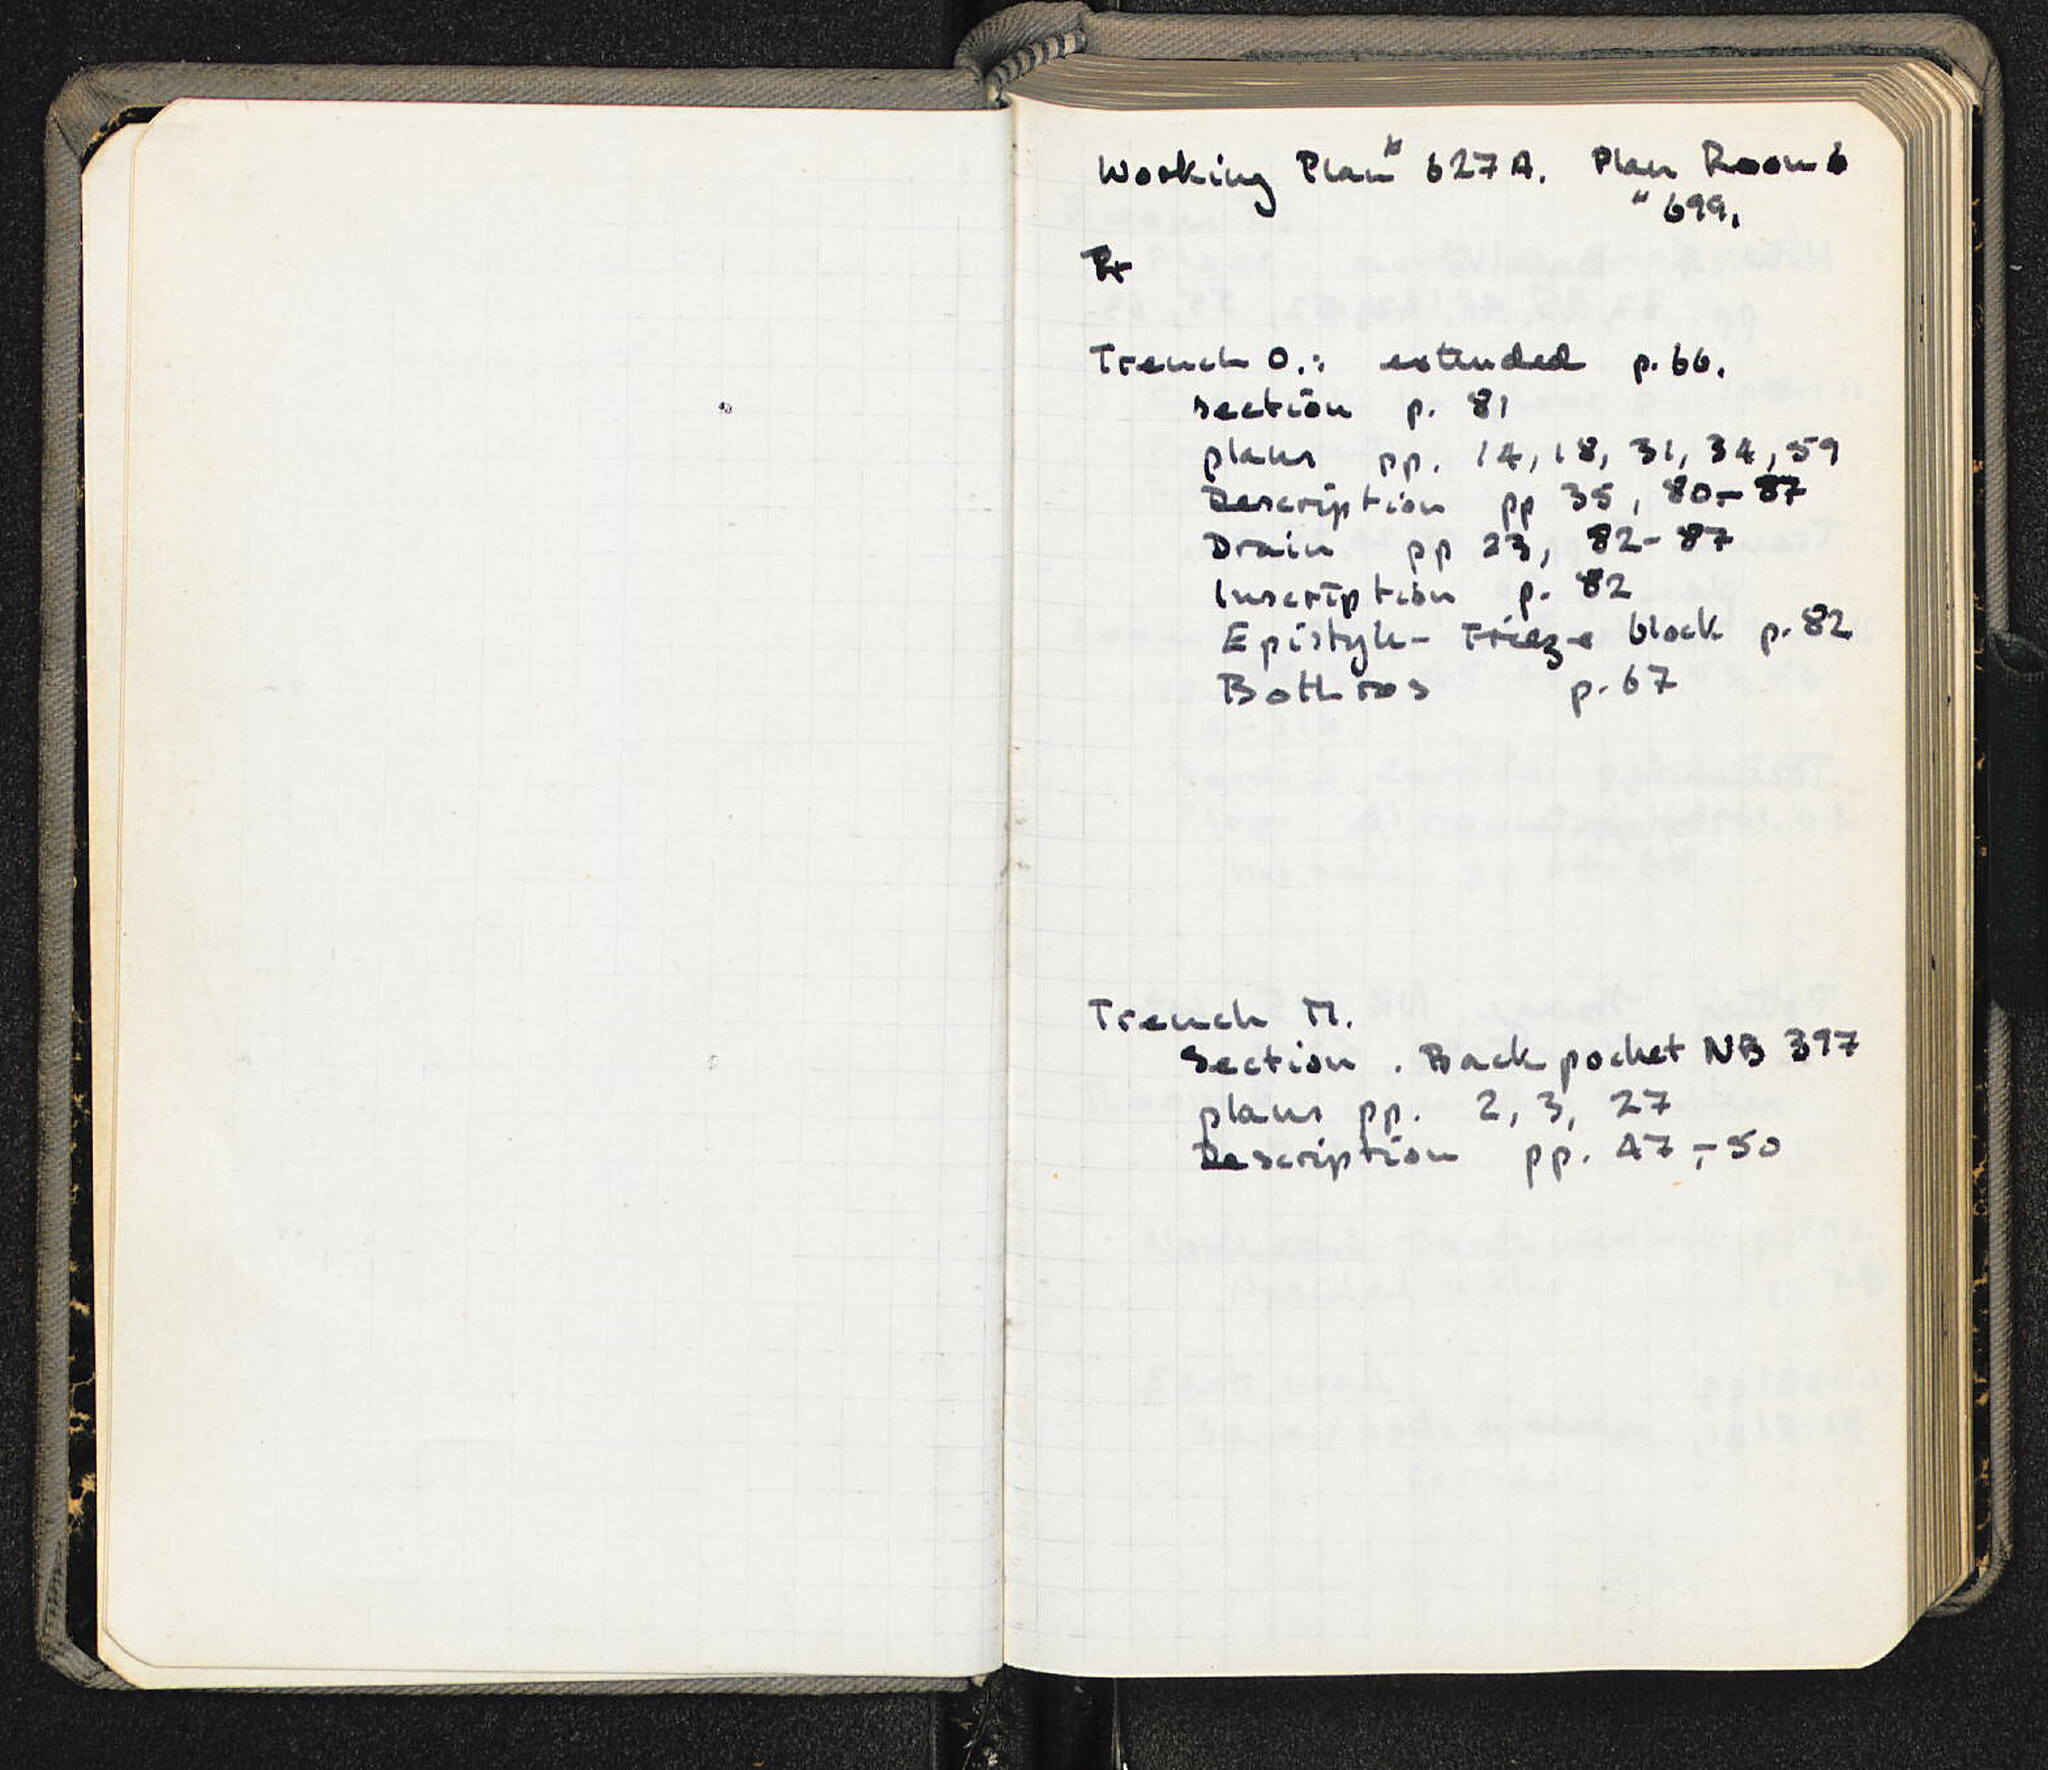 Working Plan # 627A. Plan Room 6
" 699.
Trench O.: extended p. 66.
section p. 81
plans pp. 14, 18, 31, 34, 59
Description pp 35, 80-87
Drain pp 23, 82-87
Inscription p. 82
Epistyle-Frieze block p. 82
Bothros p. 67
Trench M.
Section . Back pocket NB 397
plans pp. 2, 3, 27
Description pp. 47,-50